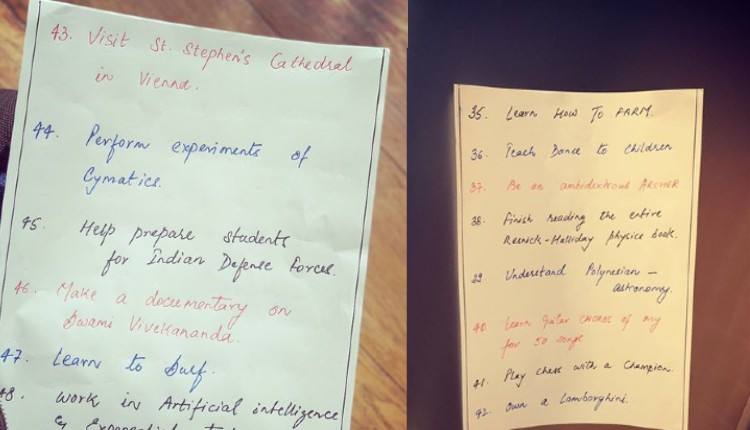 43. Visit St. Stephen's Cathedral
in Vienna.
44. Perform experiments of
Cymatics.
45. Help prepare students
for Indian Defense Forces.
46. Make a documentary on
Swami Vivekananda.
47. Learn to Surf.
48. Work in Artificial intelligence
&
35. Learn HOW TO FARM.
36. Teach Dance to children
37. Be an ambidextrous ARCHER
38. Finish reading the entire
Resnick-Halliday physics book.
39. Understand Polynesian -
astronomy.
40. Learn Guitar CHORDS of my
for 50 songs
41. Play chess with a Champion.
42. Own a Lamborghini.